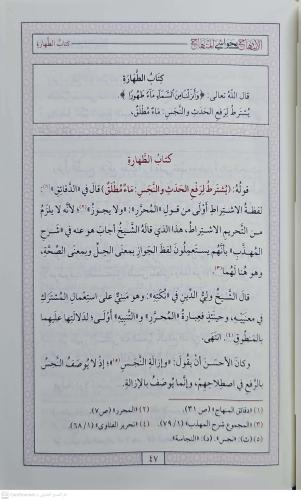 الابتهاج بحواشي المنهاج
كتاب الطهارة
كِتَابُ الطَّهَارَةِ
قَالَ اللهُ تَعَالَى: ﴿وَأَنزَلْنَا مِنَ السَّمَاءِ مَاءً طَهُورًا﴾.
يُشْتَرَطُ لِرَفْعِ الحَدَثِ وَالنَّجَسِ: مَاءٌ مُطْلَقٌ،
كِتَابُ الطَّهَارَةِ
قولُهُ: (يُشْتَرَطُ لِرَفْعِ الحَدَثِ وَالنَّجَسِ: مَاءٌ مُطْلَقٌ) قال في «الدَّقائق»(١):
لفظةُ الاشتراطِ أَوْلَى من قولِ «المُحَرَّرِ»: «ولا يجوزُ»(٢)؛ لأنَّه لا يلزَمُ
من التَّحريمِ الاشتراطُ، هذا الذي قالَهُ الشَّيخُ أجابَ هو عنه في «شرحِ
المهذَّبِ» بأنَّهم يستعمِلُونَ لفظَ الجَوازِ بمعنَى الحِلِّ وبمعنَى الصِّحَّةِ،
وهو هُنا لَهُما(٣).
قال الشَّيخُ وليُّ الدِّينِ في «نُكَتِهِ»: وهو مَبْنِيٌّ على استعمالِ المُشْتَرَكِ
في معنيَيْهِ، وحينئذٍ فعِبارةُ «المُحرَّرِ» و«التَّنبيهِ» أَوْلَى؛ لدَلالتِها عليهما
بالمنطُوقِ(٤). انتهَى.
وكانَ الأحسنَ أنْ يقُولَ: «وإزالةِ النَّجَسِ»(٥)؛ إذ لا يُوصَفُ النَّجَسُ
بالرَّفعِ في اصطِلاحِهم، وإنَّما يُوصَفُ بالإزالةِ.
(١) «دقائق المنهاج» (ص ٣١). (٢) «المحرر» (ص٧).
(٣) «المجموع شرح المهذب» (١/ ٧٩). (٤) «تحرير الفتاوي» (١/ ٦٨).
(٥) (ث): «نجس». (د): «النجاسة».
٤٧